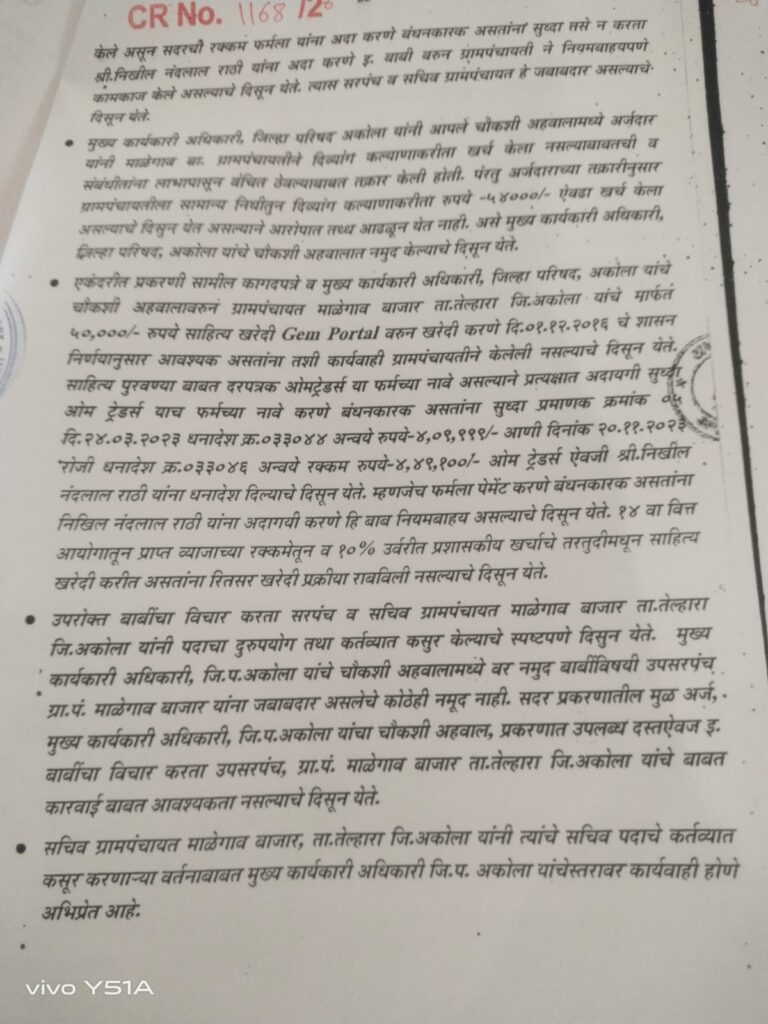 CR No. 1168 /2
केले असून सदरची रक्कम फर्मला यांना अदा करणे बंधनकारक असतांना सुध्दा तसे न करता
श्री.निखील नंदलाल राठी यांना अदा करणे इ. बाबी वरुन ग्रामपंचायती ने नियमबाहयपणे
कामकाज केले असल्याचे दिसून येते. त्यास सरपंच व सचिव ग्रामपंचायत हे जबाबदार असल्याचे
दिसून येते.
• मुख्य कार्यकारी अधिकारी, जिल्हा परिषद अकोला यांनी आपले चौकशी अहवालामध्ये अर्जदार
यांनी माळेगाव बा. ग्रामपंचायतीने दिव्यांग कल्याणाकरीता खर्च केला नसल्याबाबतची व
संबंधीतांना लाभापासून वंचित ठेवल्याबाबत तक्रार केली होती. पंरतु अर्जदाराच्या तक्रारीनुसार
ग्रामपंचायतीला सामान्य निधीतुन दिव्यांग कल्याणाकरीता रुपये -५४०००/- ऐवढा खर्च केला
असल्याचे दिसुन येत असल्याने आरोपात तथ्य आढळून येत नाही. असे मुख्य कार्यकारी अधिकारी,
जिल्हा परिषद, अकोला यांचे चौकशी अहवालात नमुद केल्याचे दिसून येते.
• एकंदरीत प्रकरणी सामील कागदपत्रे व मुख्य कार्यकारी अधिकारी, जिल्हा परिषद, अकोला यांचे
चौकशी अहवालावरुनं ग्रामपंचायत माळेगाव बाजार ता.तेल्हारा जि.अकोला यांचे मार्फतं
५०,०००/- रुपये साहित्य खरेदी Gem Portal वरुन खरेदी करणे दि.०१.१२.२०१६ चे शासन
निर्णयानुसार आवश्यक असतांना तशी कार्यवाही ग्रामपंचायतीने केलेली नसल्याचे दिसून येते.
साहित्य पुरवण्या बाबत दरपत्रक ओमट्रेडर्स या फर्मच्या नावे असल्याने प्रत्यक्षात अदायगी सुध्दा
ओम ट्रेडर्स याच फर्मच्या नावे करणे बंधनकारक असतांना सुध्दा प्रमाणक क्रमांक ०५
दि.२४.०३.२०२३ धनादेश क्र.०३३०४४ अन्वये रुपये-४,०९,९९९/- आणी दिनांक २०.११.२०२३
रोजी धनादेश क्र.०३३०४६ अन्वये रक्कम रुपये-४,४९,१००/- ओम ट्रेडर्स ऐवजी श्री.निखील
नंदलाल राठी यांना धनादेश दिल्याचे दिसून येते. म्हणजेच फर्मला पेमेंट करणे बंधनकारक असतांना
निखिल नंदलाल राठी यांना अदागयी करणे हि बाब नियमबाहय असल्याचे दिसून येते. १४ वा वित्त
आयोगातून प्राप्त व्याजाच्या रक्कमेतून व १०% उर्वरीत प्रशासकीय खर्चाचे तरतुदीमधून साहित्य
खरेदी करीत असतांना रितसर खरेदी प्रक्रीया राबविली नसल्याचे दिसून येते.
• उपरोक्त बाबींचा विचार करता सरपंच व सचिव ग्रामपंचायत माळेगाव बाजार ता.तेल्हारा
जि.अकोला यांनी पदाचा दुरुपयोग तथा कर्तव्यात कसुर केल्याचे स्पष्टपणे दिसुन येते. मुख्य
कार्यकारी अधिकारी, जि.प.अकोला यांचे चौकशी अहवालामध्ये वर नमुद बाबींविषयी उपसरपंच
ग्रा.पं. माळेगाव बाजार यांना जबाबदार असलेचे कोठेही नमूद नाही. सदर प्रकरणातील मुळ अर्ज,
मुख्य कार्यकारी अधिकारी, जि.प.अकोला यांचा चौकशी अहवाल, प्रकरणात उपलब्ध दस्तऐवज इ.
बाबींचा विचार करता उपसरपंच, ग्रा.पं. माळेगाव बाजार ता.तेल्हारा जि.अकोला यांचे बाबत
कारवाई बाबत आवश्यकता नसल्याचे दिसून येते.
• सचिव ग्रामपंचायत माळेगाव बाजार, ता.तेल्हारा जि.अकोला यांनी त्यांचे सचिव पदाचे कर्तव्यात
कसूर करणाऱ्या वर्तनाबाबत मुख्य कार्यकारी अधिकारी जि.प. अकोला यांचेस्तरावर कार्यवाही होणे
अभिप्रेत आहे.
vivo Y51A